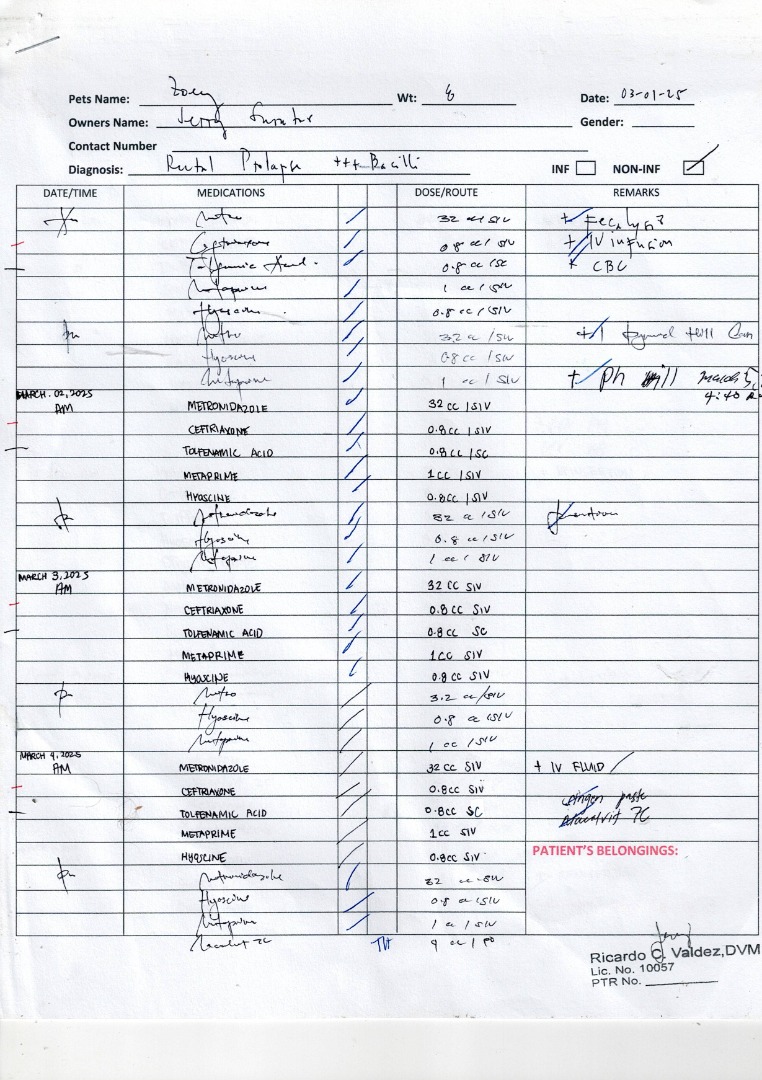 Pets Name: Zoey Wt: 8 Date: 03-01-25
Owners Name: Jerry Gender:
Contact Number
Diagnosis: Rectal Prolapse +++ Bacilli INF NON-INF
DATE/TIME MEDICATIONS DOSE/ROUTE REMARKS
Am Metro 32 cc/SIV + Fecalysis
Ceftriaxone 0.8 cc/SIV + IV infusion
Tolfenamic Acid 0.8 cc/SC CBC
Metaprime 1 cc/SIV
Hyoscine 0.8 cc/SIV
pm Metro 32 cc/SIV
Hyoscine 0.8 cc/SIV
Metaprime 1 cc/SIV + Ph till March 5,
MARCH. 02, 2025 4:40
AM METRONIDAZOLE 32 CC/SIV
CEFTRIAXONE 0.8 CC/SIV
TOLFENAMIC ACID 0.8 CC/SC
METAPRIME 1 CC/SIV
HYOSCINE 0.8 CC/SIV
pm Metronidazole 32 cc/SIV
Hyoscine 0.8 cc/SIV
Metaprime 1 cc/SIV
MARCH 3, 2025
AM METRONIDAZOLE 32 CC SIV
CEFTRIAXONE 0.8 CC SIV
TOLFENAMIC ACID 0.8 CC SC
METAPRIME 1 CC SIV
HYOSCINE 0.8 CC SIV
pm Metro 3.2 cc/SIV
Hyoscine 0.8 cc/SIV
Metaprime 1 cc/SIV
MARCH 4, 2025
AM METRONIDAZOLE 32 CC SIV + IV FLUID
CEFTRIAXONE 0.8 CC SIV paste
TOLFENAMIC ACID 0.8 CC SC TC
METAPRIME 1 CC SIV
HYOSCINE 0.8 CC SIV PATIENT'S BELONGINGS:
pm Metronidazole 32 cc SIV
Hyoscine 0.8 cc/SIV
Metaprime 1 cc/SIV
TC 4 cc/PO
Ricardo C. Valdez, DVM
Lic. No. 10057
PTR No.